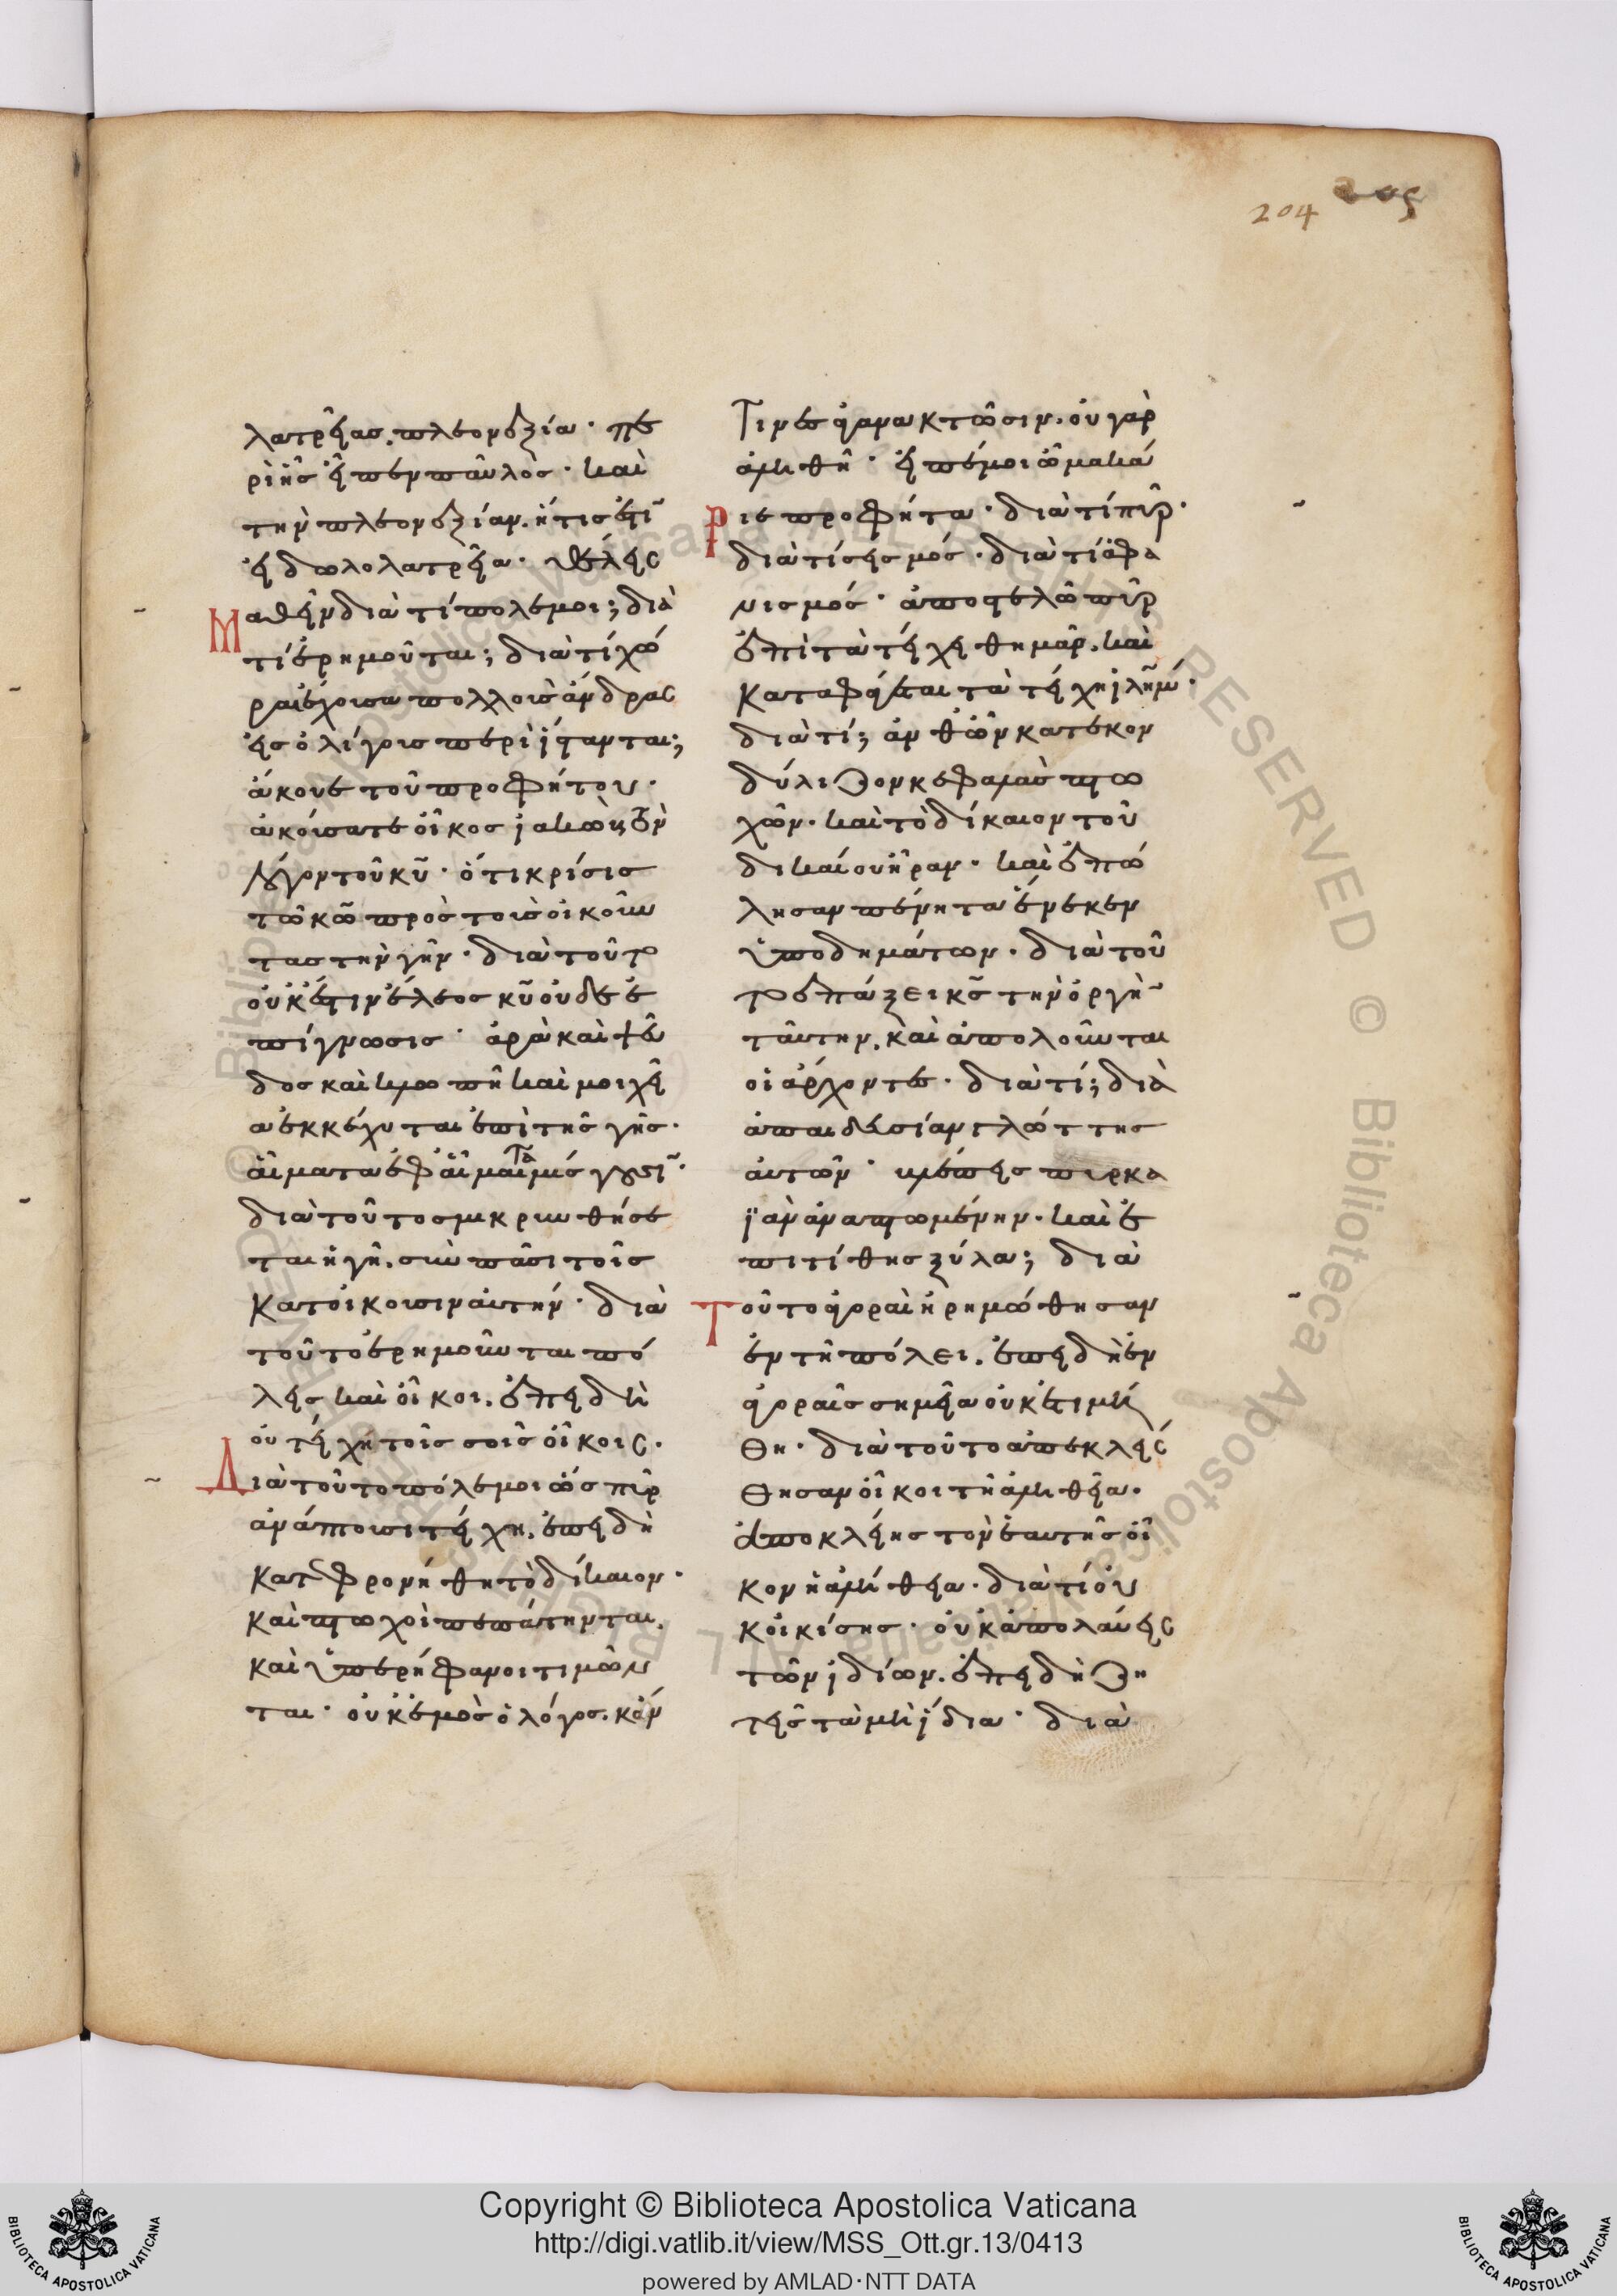 204
λατρείας, πλεονεξία· πε
ρὶ ἧς εἶπεν παῦλος· καὶ
τὴν πλεονεξίαν, ἥτις ἐστὶ
εἰδωλολατρεία· θέλεις
Μαθεῖν διὰ τί πόλεμοι; διὰ
τί ἐρημοῦται; διὰ τί χώ
ραι ἔχουσα πολλοὺς ἄνδρας
εἰς ὀλίγοις περιίστανται;
ἄκουε τοῦ προφήτου·
ἀκούσατε οἶκος ἰακὼβ τὸν
λόγον τοῦ κυ· ὅτι κρίσις
τῶ κω πρὸς τοὺς οἰκοῦν
τας τὴν γῆν· διὰ τοῦτο
οὐκ ἔστιν ἔλεος κυ οὐδὲ ἐ
πίγνωσις· ἀρὰ καὶ ψεῦ
δος καὶ κλωπὴ καὶ μοιχεί
α ἐκκέχυται ἐπὶ τῆς γῆς·
αἵματα ἐφ αἵματα μίσγουσι·
διὰ τοῦτο σμικρυνθήσε
ται ἡ γῆ, σὺν πᾶσι τοῖς
κατοικοῦσιν αὐτήν· διὰ
τοῦτο ἐρημοῦνται πό
λεις καὶ οἶκοι, ἐπειδὴ
οὐ τείχη τοῖς σοῖς οἴκοις·
Διὰ τοῦτο πόλεμοι ὡς πῦρ
ἀνάπτουσι τείχη, ἐπειδὴ
κατεφρονήθη τὸ δίκαιον·
καὶ πτωχοὶ πεπάτηνται,
καὶ ὑπερήφανοι τιμῶν
ται· οὐκ ἐμὸς ὁ λόγος, κἄν
τινες ἀγανακτῶσιν, οὐ γὰρ
ἀληθῆ· εἰπέ μοι ὦ μακά
ριε προφῆτα· διὰ τί πῦρ·
διὰ τί σεισμός· διὰ τί ἀφα
νισμός· ἀποστελῶ πῦρ
ἐπὶ τὰ τείχη θημάν, καὶ
καταφάγεται τὰ τείχη ιλημ·
διὰ τί; ἀνθ ὧν κατεκον
δύλιζον κεφαλὰς πτω
χῶν· καὶ τὸ δίκαιον τοῦ
δικαίου ἦραν· καὶ ἐπώ
λησαν πένητα ἕνεκεν
ὑποδημάτων· διὰ τοῦ
το ἐπάξει κς τὴν ὀργὴν
ταύτην, καὶ ἀπολοῦνται
οἱ ἄρχοντες· διὰ τί; διὰ
ἀπαιδευσίαν γλώττης
αὐτῶν· βλέπεις πυρκα
ϊὰν ἀναπτωμένην· καὶ ἐ
πιτίθης ξύλα; διὰ
Τοῦτο ἀγοραὶ ἠρημώθησαν
ἐν τῆ πόλει, ἐπειδὴ ἐν
ἀγοραῖς σημεῖα οὐκ ἔστι μὴ
θη· διὰ τοῦτο ἀπεκλείσ
θησαν οἶκοι τῆ ἀληθεία·
ἀποκλείης τὸν ἑαυτῆς οἶ
κον ἡ ἀλήθεια· διὰ τί οὐ
κ οἰκίσης· οὐκ ἀπολαύεις
τῶν ἰδίων, ἐπειδὴ ζη
τεῖς τὰ μὴ ἴδια· διὰ
Copyright © Biblioteca Apostolica Vaticana
http://digi.vatlib.it/view/MSS_Ott.gr.13/0413
powered by AMLAD·NTT DATA